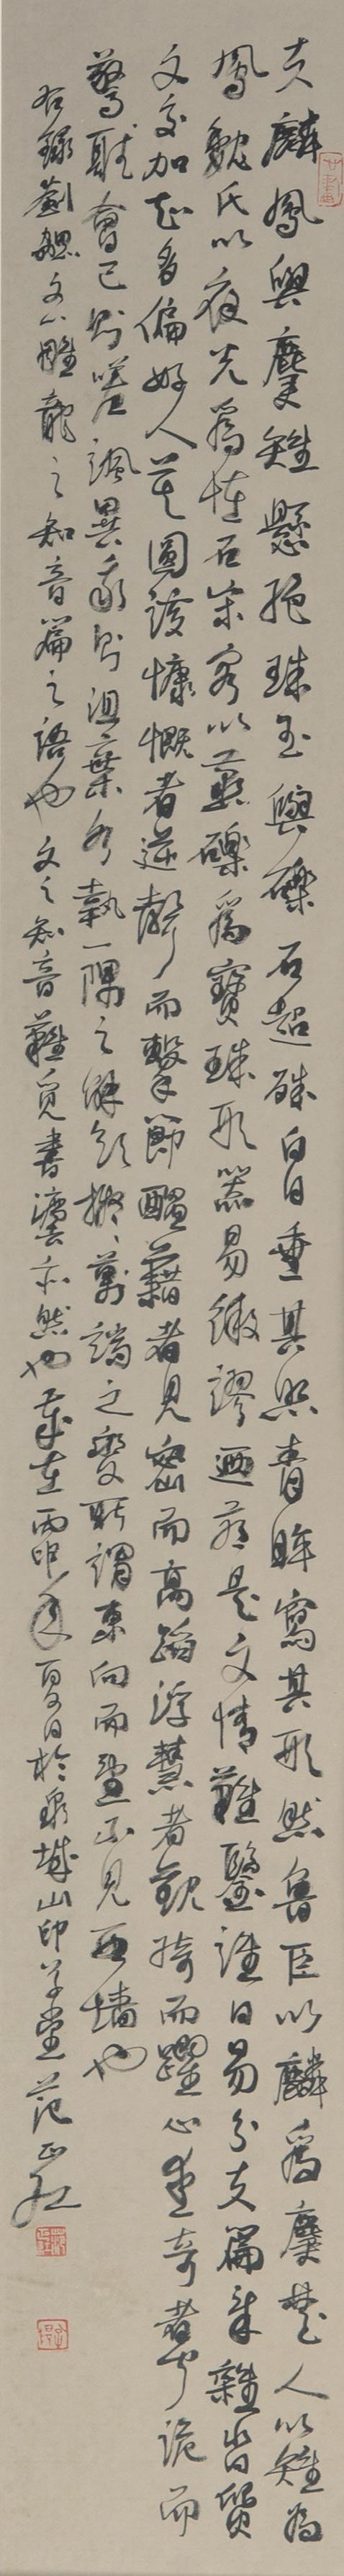 夫麟鳳與麏雉懸絕珠玉與礫石超殊白日垂其照青眸寫其形然魯臣以麟為麏楚人以雉為
鳳魏氏以夜光為怪石宋客以燕礫為寶珠形器易徵謬迺若是文情難鑒誰曰易分夫篇章雜沓質
文交加知多偏好人莫圓該慷慨者逆聲而擊節醞藉者見密而高蹈浮慧者觀綺而躍心愛奇者聞詭而
驚聽會己則嗟諷異我則沮棄各執一隅之解欲擬萬端之變所謂東向而望不見西牆也
右錄劉勰文心雕龍之知音篇之語也文之知音難覓書畫亦然也歲在丙申年夏日於泉城山印草堂范正紅